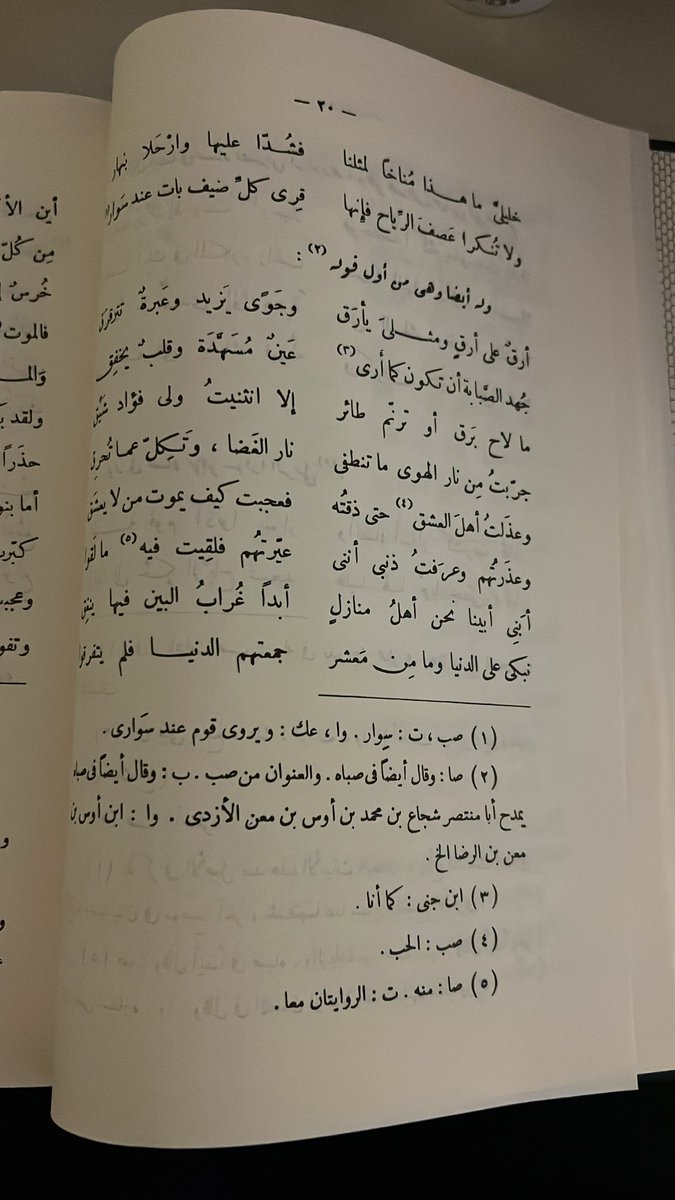 — ٢٠ —
خليلىَّ ما هـذا مُناخاً لمثلنا فشُـدّا عليها وارْحَلا بنهار
ولا تُنكرا عَصفَ الرِّياح فإنها قِرى كلِّ ضيف بات عند سَوار
وله أيضا وهى من أول قوله (٢) :
أرقٌ على أرقٍ ومثـلىَ يأرَق وجَوًى يَزيد وعَبرةٌ تترقرق
جُهد الصَّبابة أن تكون كما أرى (٣) عَينٌ مُسَهَّدَة وقلبٌ يخفِق
ما لاح بَرَق أو ترنّم طائر إلا انثنيتُ ولى فؤاد شَيِّق
جرّبتُ مِن نار الهوى ما تنطفى نار الغَضا ، وَتَكِلّ عما تُحرِق
وعذَلتُ أهلَ العشق (٤) حتى ذقتُه فعجبت كيف يموت من لا يعشق
وعذَرتُهم وعرَفتُ ذنبى أننى عيّرتهُم فلقِيت فيه (٥) ما لقوا
أبَنِى أبينا نحن أهلُ منازلٍ أبداً غُرابُ البين فيها ينعق
نبكى على الدنيا وما مِن مَعشر جمعتهم الدنيـا فلم يتفرقوا
(١) صب ، ت : سِوار . وا ، عك : ويروى قوم عند سَوارى .
(٢) صا : وقال أيضاً فى صباه . والعنوان من صب . ب : وقال أيضاً فى صباه
يمدح أبا منتصر شجاع بن محمد بن أوس بن معن الأزدى . وا : ابن أوس بن
معن بن الرضا الخ .
(٣) ابن جنى : كما أنا .
(٤) صب : الحب .
(٥) صا : منه . ت : الروايتان معا .
أين الأ
مِن كُلّ
خُرسٌ
فالموت
والمـ
ولقد بَ
حذَراً
أما بنو
كبّر
وعجب
وتفو